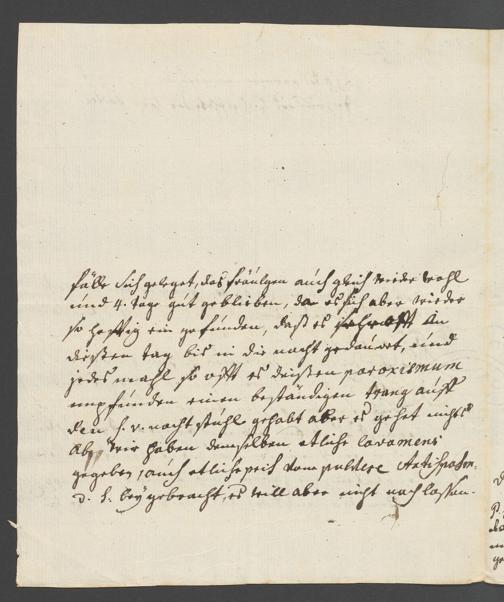 fälle sich geleget, das fräülgen auch gleich wieder wohl
und 4. tage gut geblieben, da es sich aber wieder
so hefftig ein gefunden, daß es sehr offt an
dießen tag bis in die nacht gedauret, und
jedes mahl so offt es dießen paroxismum
empfunden einen beständigen trang auff
den s. v. nacht stuhl gehabt aber es gehet nichts
ab, wir haben demselben etliche lavament
gegeben, auch etliche preis vom pulvere Antispasm:
D. S. bey gebracht, es will aber nicht nach lassen.